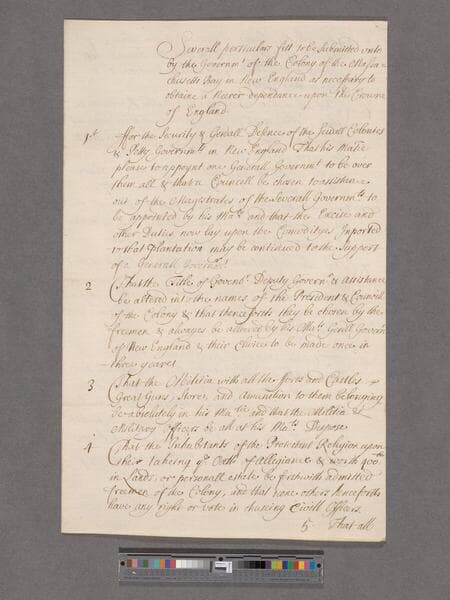 Severall particulars fitt to be submitted unto
by the Governmt of the Colony of the Massa-
chusetts Bay in New England as necessary to
obtaine a neerer dependance upon the Crowne
of England
1st ffor the Security & Gen'all Defence of the Severall Colonies
& Petty Governmts in New England That his Matie
please to appoynt one Generall Governmt to be over
them all & that a Councill be chosen to assistance
out of the Magistrates of the Severall Governmts to
be appointed by his Matie and that the Encise and
other Duties now lay upon the Comodityes Imported
to that Plantation may be continued to the Support
of a Generall Governmt
2 That the Title of Governr Deputy Governr & Assistance
be altered into the names of the President & Councill
of the Colony & that thenceforth they be chosen by the
freemen & alwayes be allowed by his Maties Genll Governr
of New England & their Choice to be made once in
three yeares
3 That the Militia with all the fforts and Castles
Great Guns, Stores, and Amunition to them belonging
be absolutely in his Matie and that the Militia &
Military Officers be all at his Maties Dispose
4 That the Inhabitants of the Protestant Religion upon
their takeing ye Oath of Allegiance & worth 400li
in Lands, or personall estate be forthwith admitted
freemen of the Colony, and that none others henceforth
have any right or vote in chuseing Civill Officers
5 That all